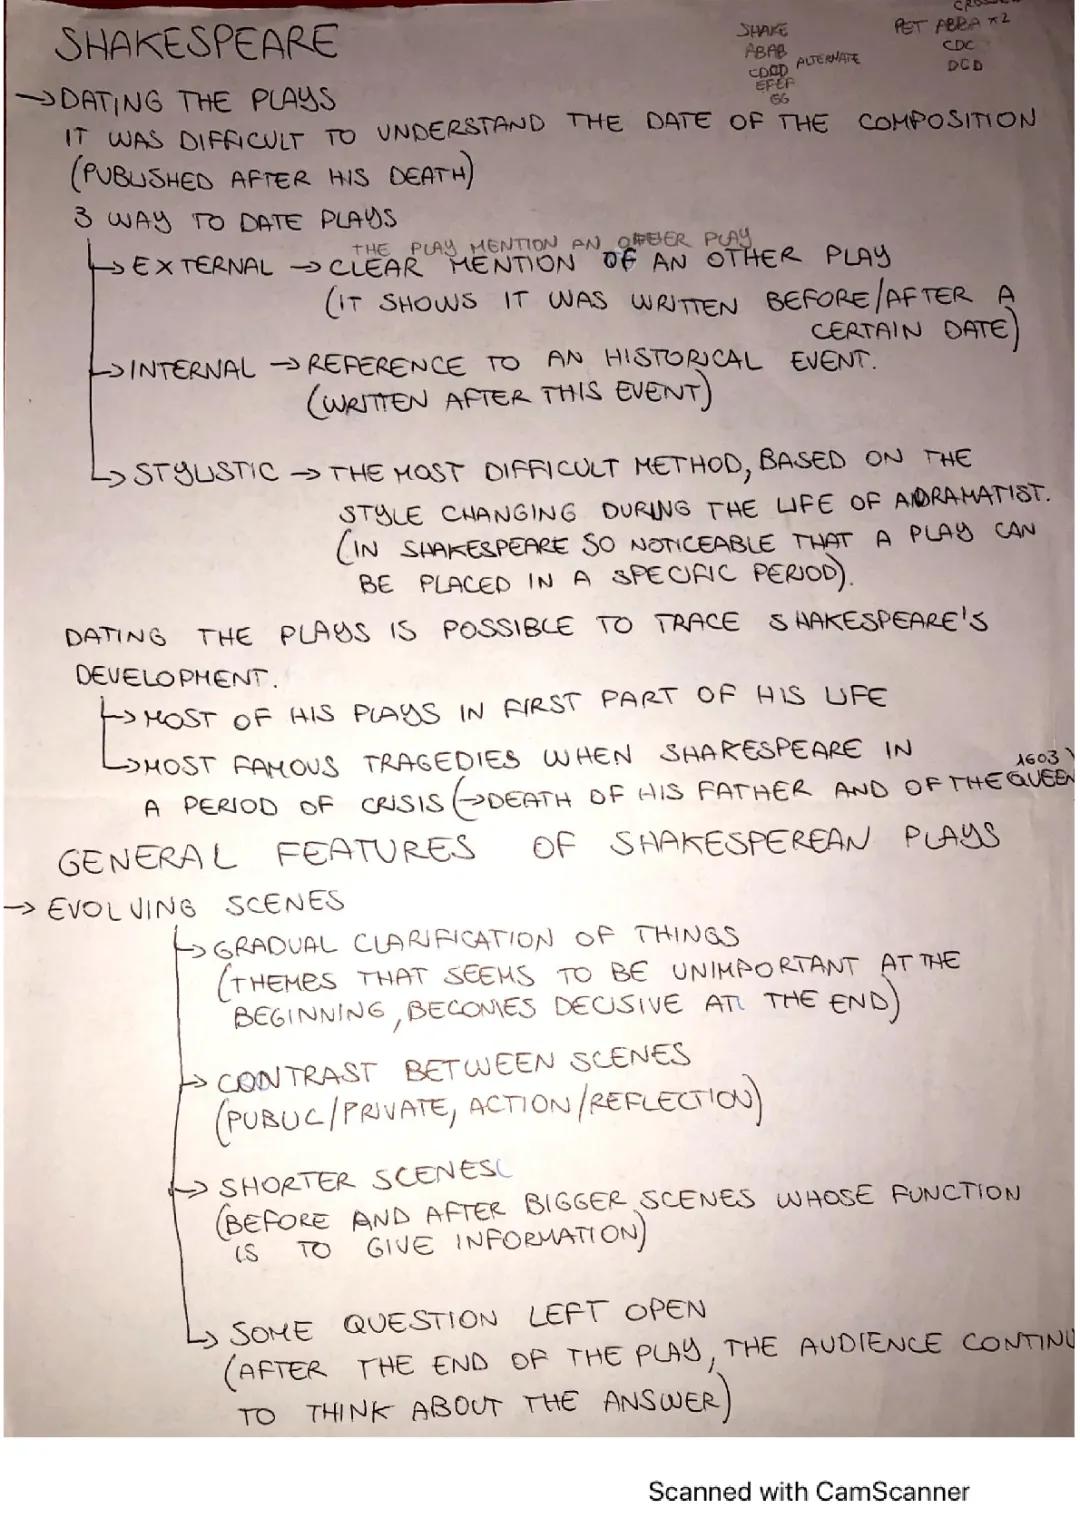 SHAKESPEARE
SHAKE
ABAB
CDCD ALTERNATE
EFEF
GG
PET ABBA x2
CDC
DCD
→ DATING THE PLAYS
IT WAS DIFFICULT TO UNDERSTAND THE DATE OF THE COMPOSITION
(PUBLISHED AFTER HIS DEATH)
3 WAY TO DATE PLAYS
THE PLAY MENTION AN OTHER PLAY
→ EXTERNAL → CLEAR MENTION OF AN OTHER PLAY
(IT SHOWS IT WAS WRITTEN BEFORE/AFTER A
CERTAIN DATE)
→ INTERNAL → REFERENCE TO AN HISTORICAL EVENT.
(WRITTEN AFTER THIS EVENT)
→ STYLISTIC → THE MOST DIFFICULT METHOD, BASED ON THE
STYLE CHANGING DURING THE LIFE OF A DRAMATIST.
(IN SHAKESPEARE SO NOTICEABLE THAT A PLAY CAN
BE PLACED IN A SPECIFIC PERIOD).
DATING THE PLAYS IS POSSIBLE TO TRACE SHAKESPEARE'S
DEVELOPMENT.
→ MOST OF HIS PLAYS IN FIRST PART OF HIS LIFE
→ MOST FAMOUS TRAGEDIES WHEN SHAKESPEARE IN
1603
A PERIOD OF CRISIS (→ DEATH OF HIS FATHER AND OF THE QUEEN
GENERAL FEATURES OF SHAKESPEREAN PLAYS
→ EVOLVING SCENES
→ GRADUAL CLARIFICATION OF THINGS
(THEMES THAT SEEMS TO BE UNIMPORTANT AT THE
BEGINNING, BECOMES DECISIVE AT THE END)
→ CONTRAST BETWEEN SCENES
(PUBLIC/PRIVATE, ACTION/REFLECTION)
→ SHORTER SCENES
(BEFORE AND AFTER BIGGER SCENES WHOSE FUNCTION
IS TO GIVE INFORMATION)
→ SOME QUESTION LEFT OPEN
(AFTER THE END OF THE PLAY, THE AUDIENCE CONTINU
TO THINK ABOUT THE ANSWER)
Scanned with CamScanner